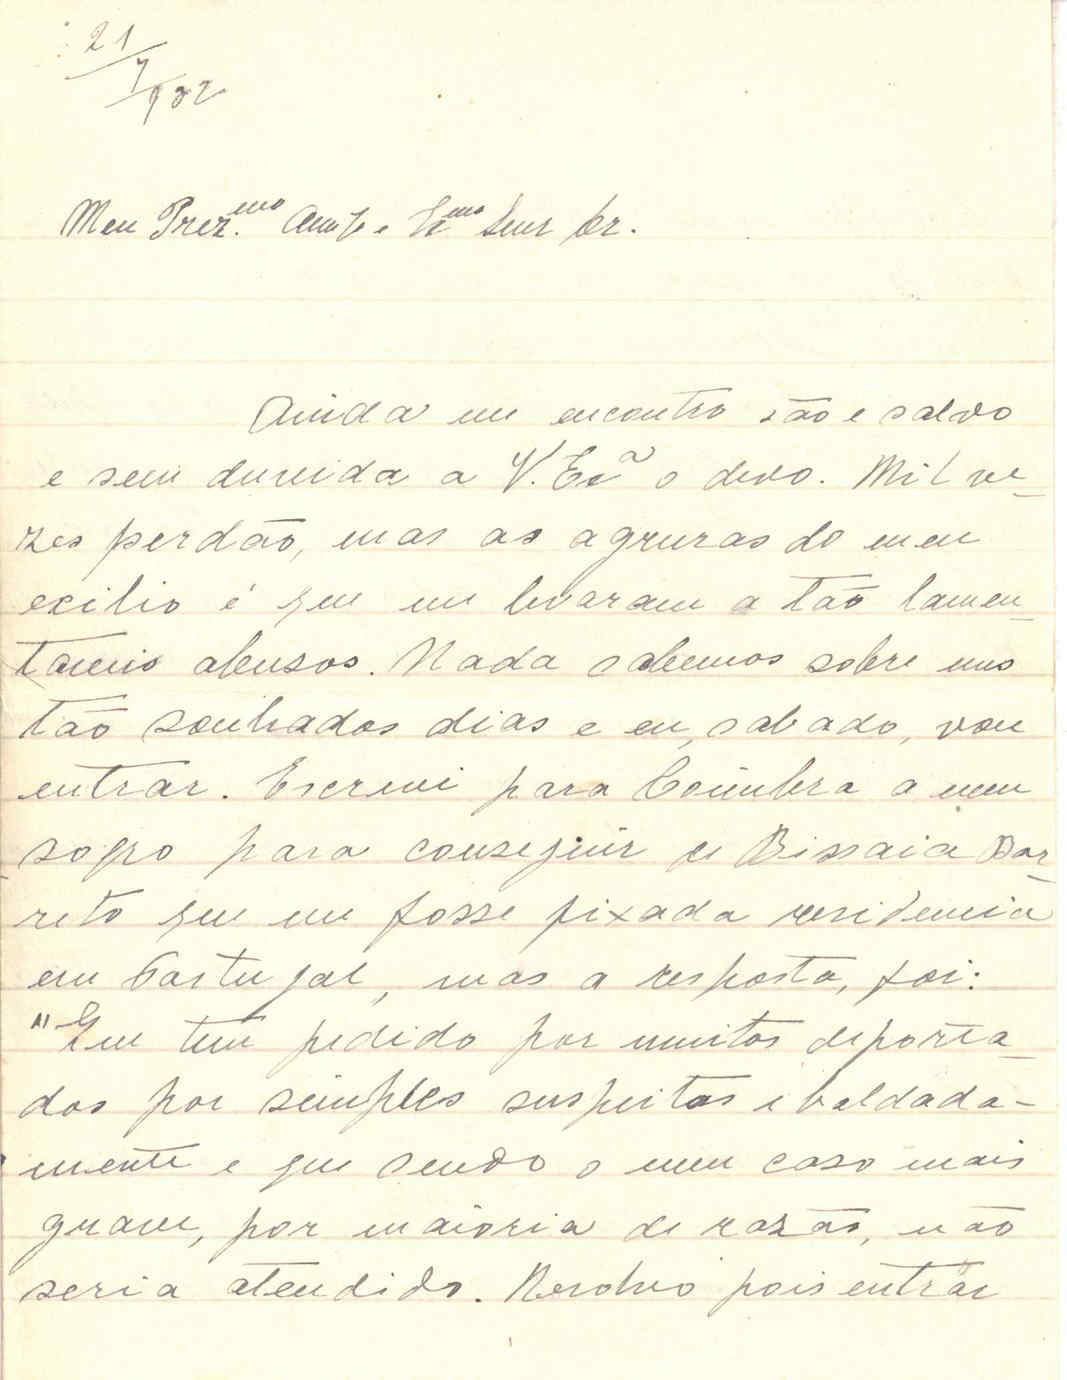 21/7/932
Meu Prez.mo Amº e Exmo Senr Dr.
Ainda me encontro são e salvo
e sem duvida a V. Exª o devo. Mil ve-
zes perdão, mas as agruras do meu
exilio é que me levaram a tão lamen-
taveis abusos. Nada sabemos sobre uns
tão sonhados dias e eu, sabado, vou
entrar. Escrevi para Coimbra a meu
sogro para conseguir de Bissaia Bar-
reto que me fosse fixada residencia
em Portugal, mas a resposta, foi:
"Que tem pedido por muitos deporta-
dos por simples suspeitas e baldada-
mente e que sendo o meu caso mais
grave, por maioria de razão, não
seria atendido. Resolvo pois entrar